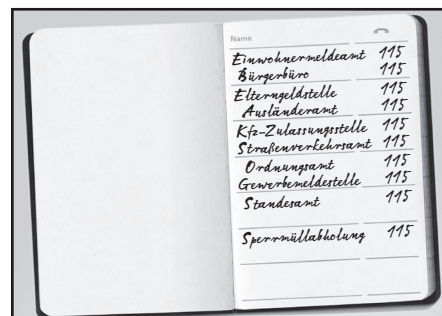 Name
Einwohnermeldeamt 115
Bürgerbüro 115
Elterngeldstelle 115
Ausländeramt 115
Kfz-Zulassungsstelle 115
Straßenverkehrsamt 115
Ordnungsamt 115
Gewerbemeldestelle 115
Standesamt 115
Sperrmüllabholung 115